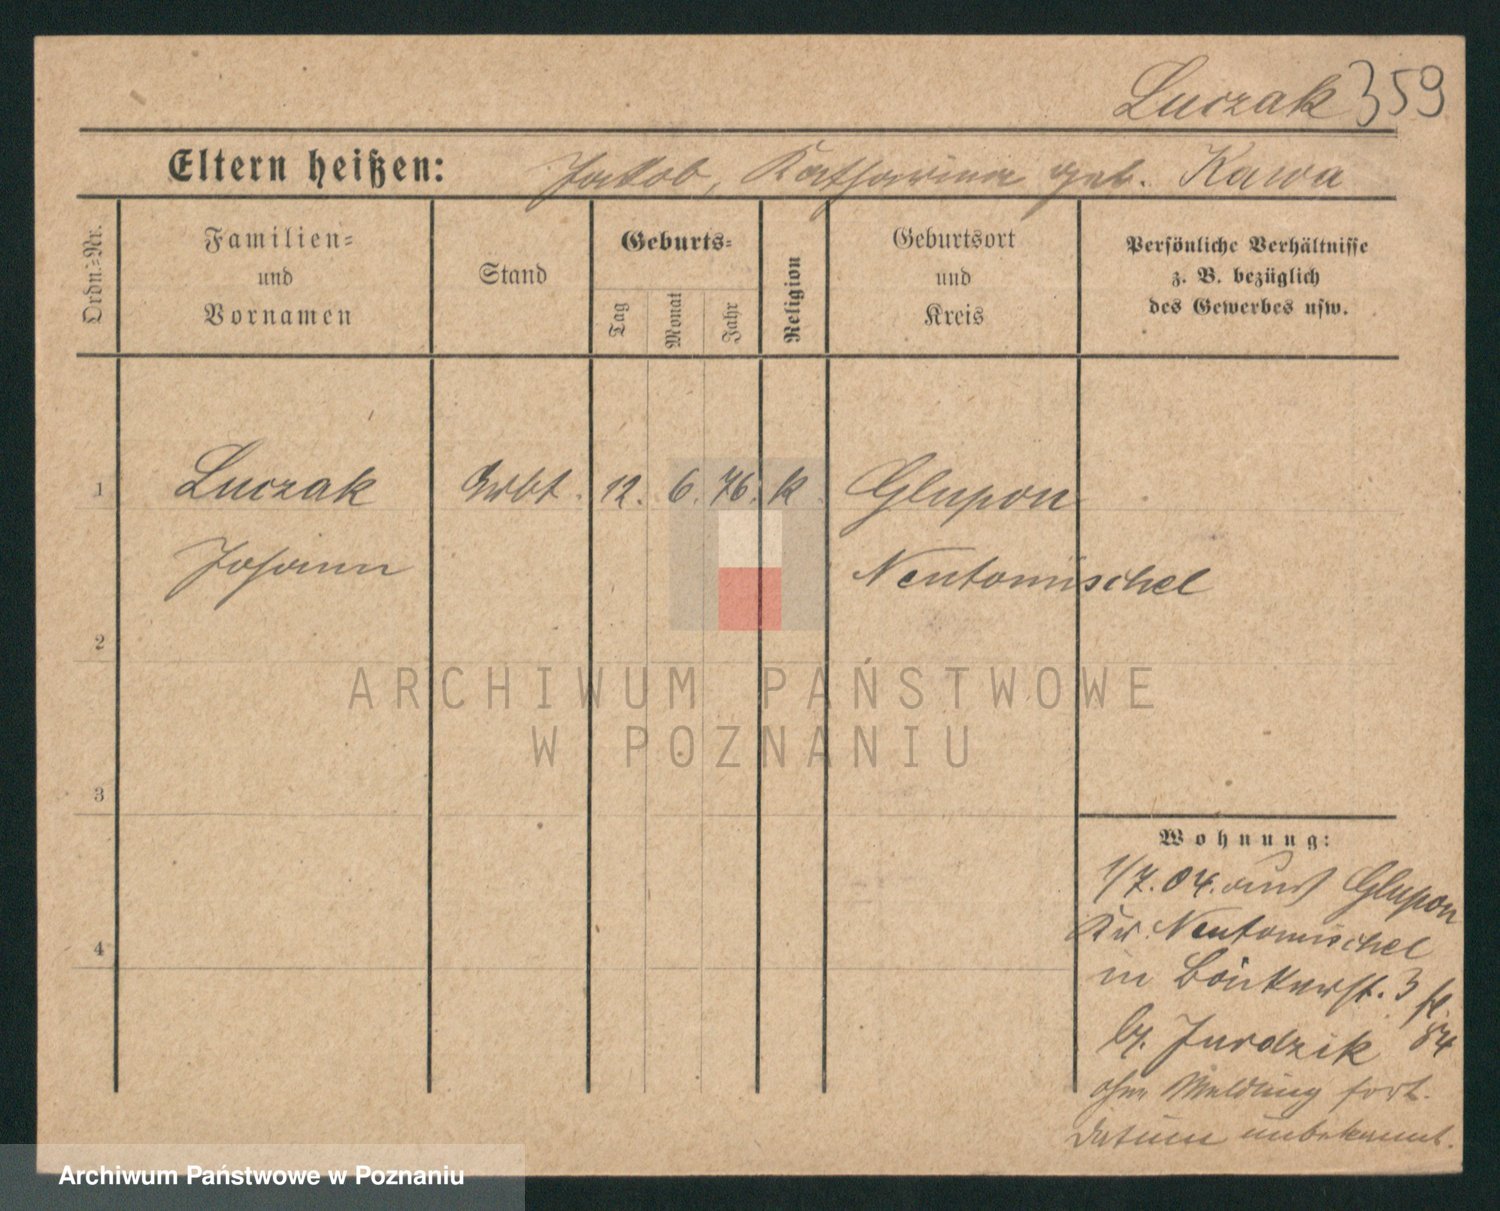 Luczak 359
Eltern heißen: Jakob, Katharina geb. Kawa
Ordn.-Nr.
Familien-
und
Vornamen
Stand
Geburts-
Tag
Monat
Jahr
Religion
Geburtsort
und
Kreis
Persönliche Verhältnisse
z. B. bezüglich
des Gewerbes usw.
1 Luczak Arbt. 12. 6. 76. k. Glupon
Johann Neutomischel
2
ARCHIWUM PAŃSTWOWE
W POZNANIU
3
Wohnung:
1/7. 04. aus Glupon
Kr. Neutomischel
in Bäckerst. 3
b. Jurdzik 84
ohne Meldung fort.
Datum unbekannt.
4
Archiwum Państwowe w Poznaniu